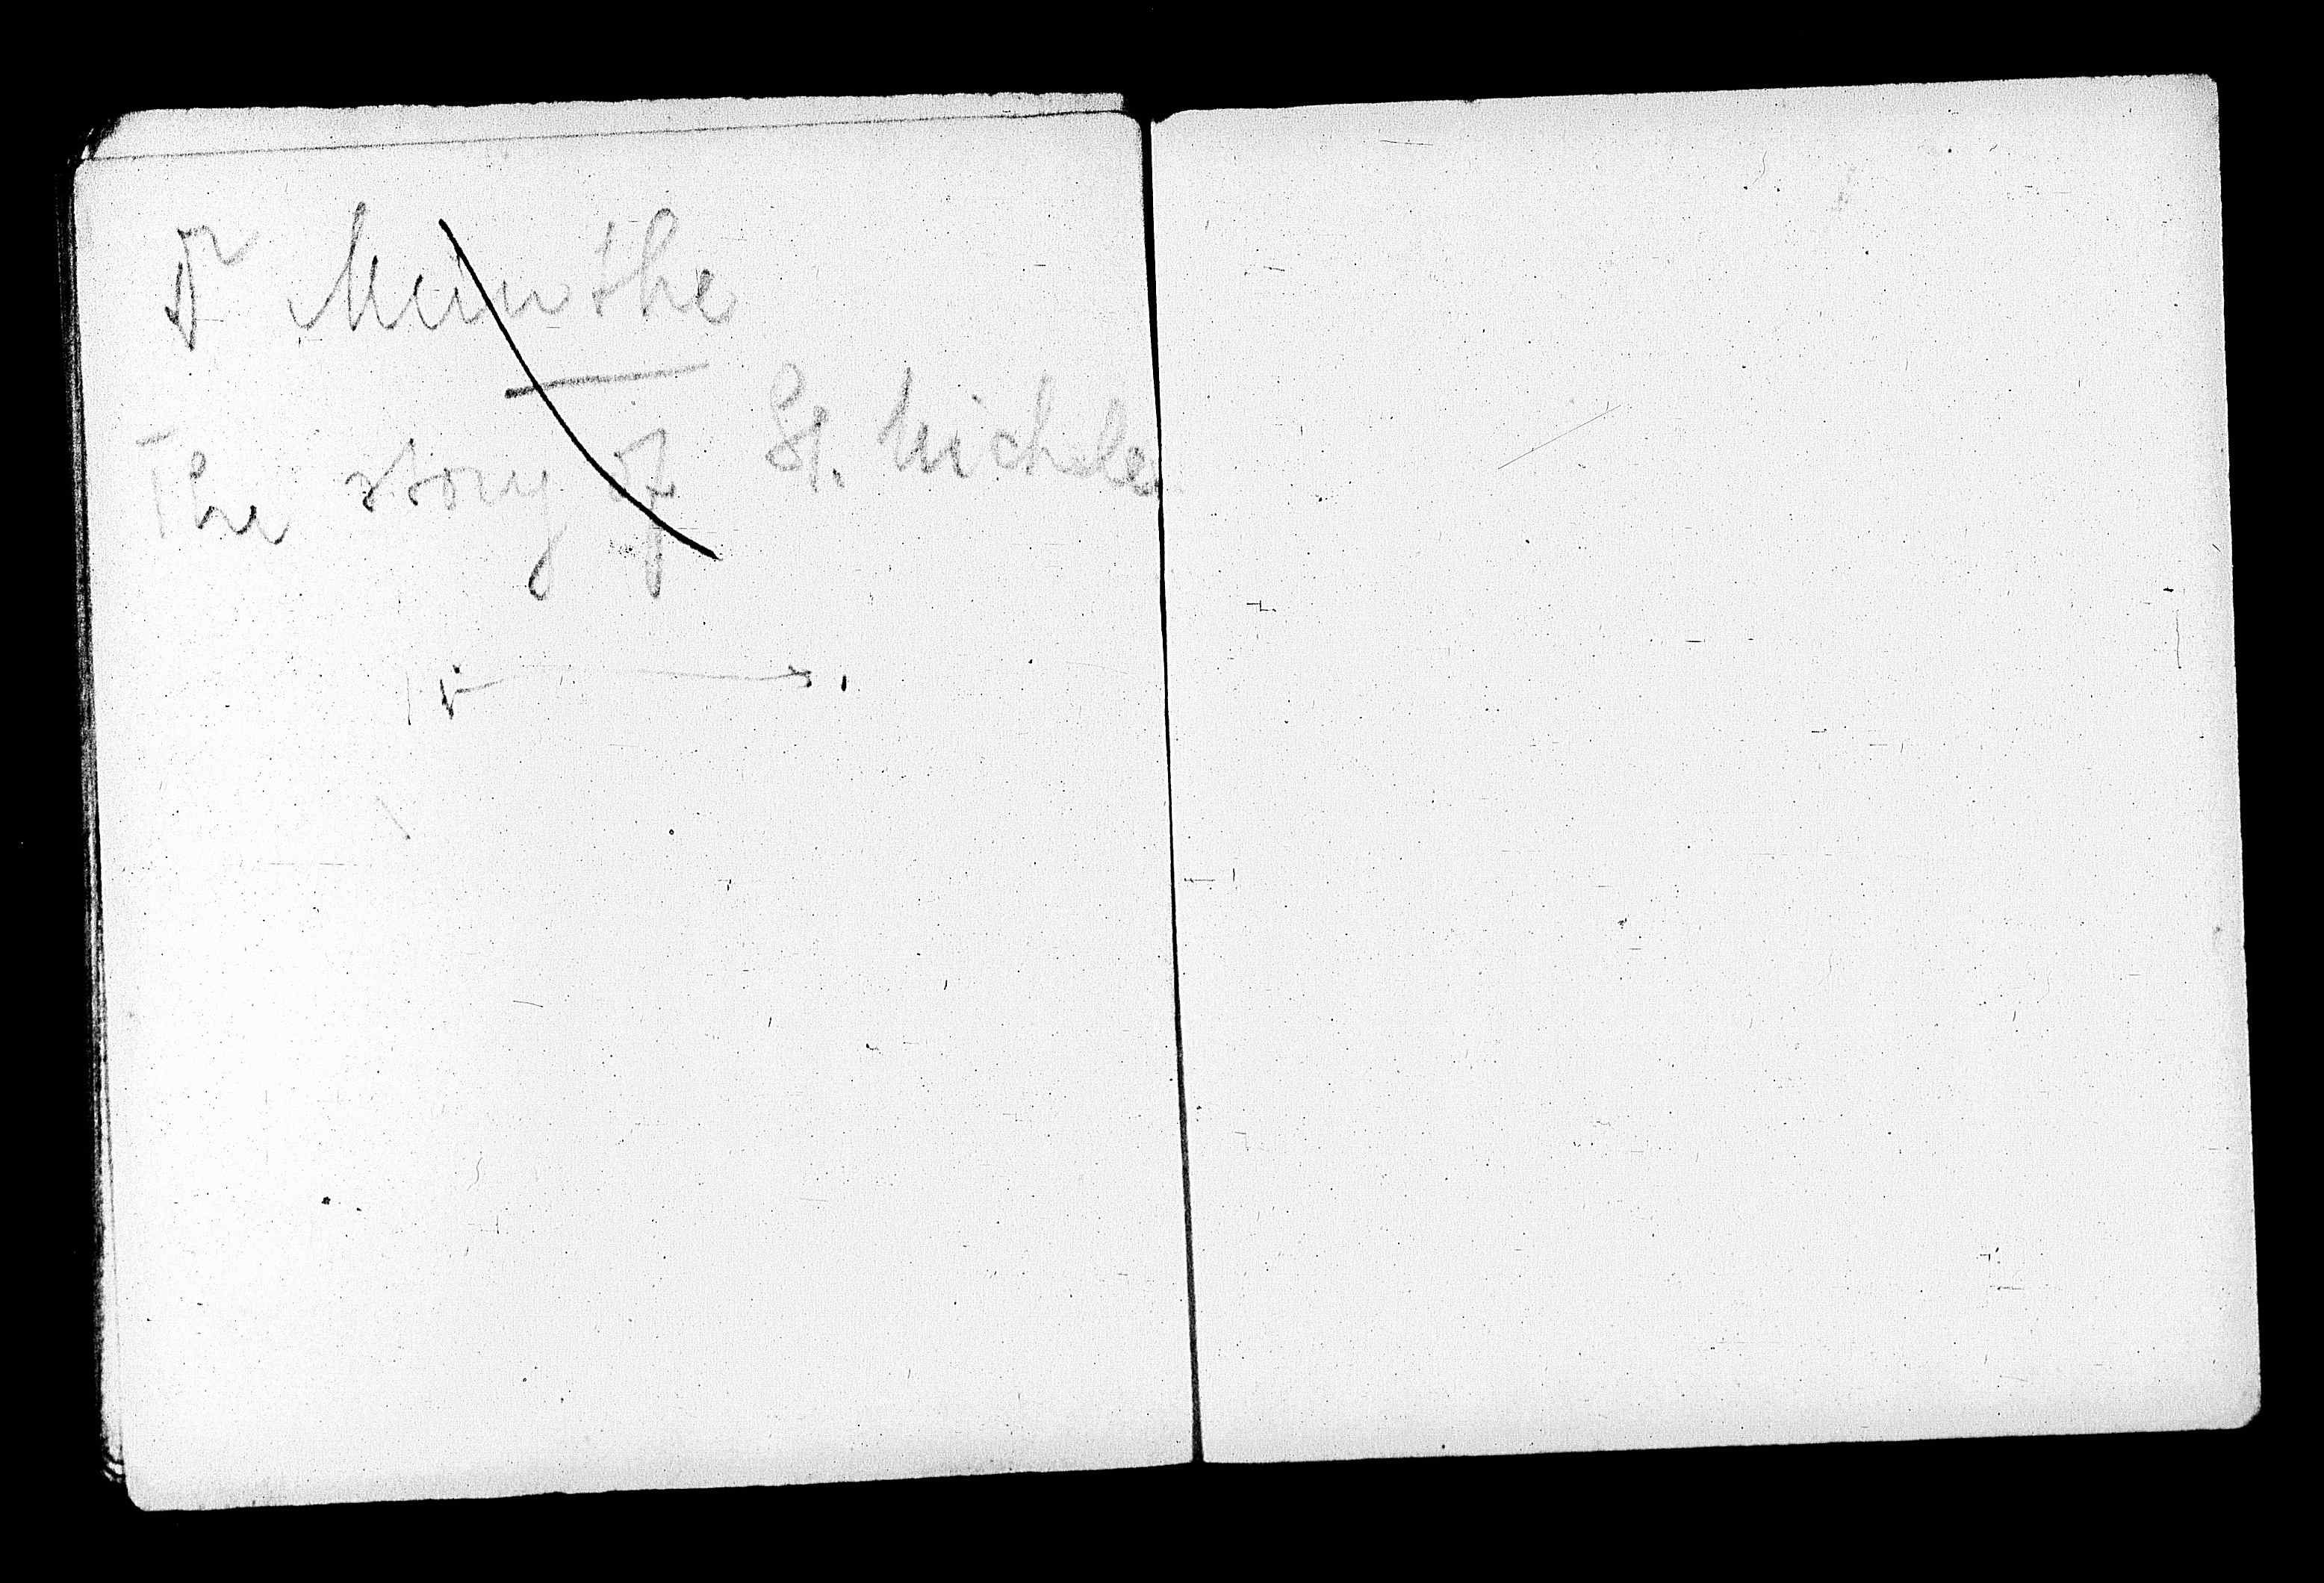 Dr Munthe
The story of St. Michele